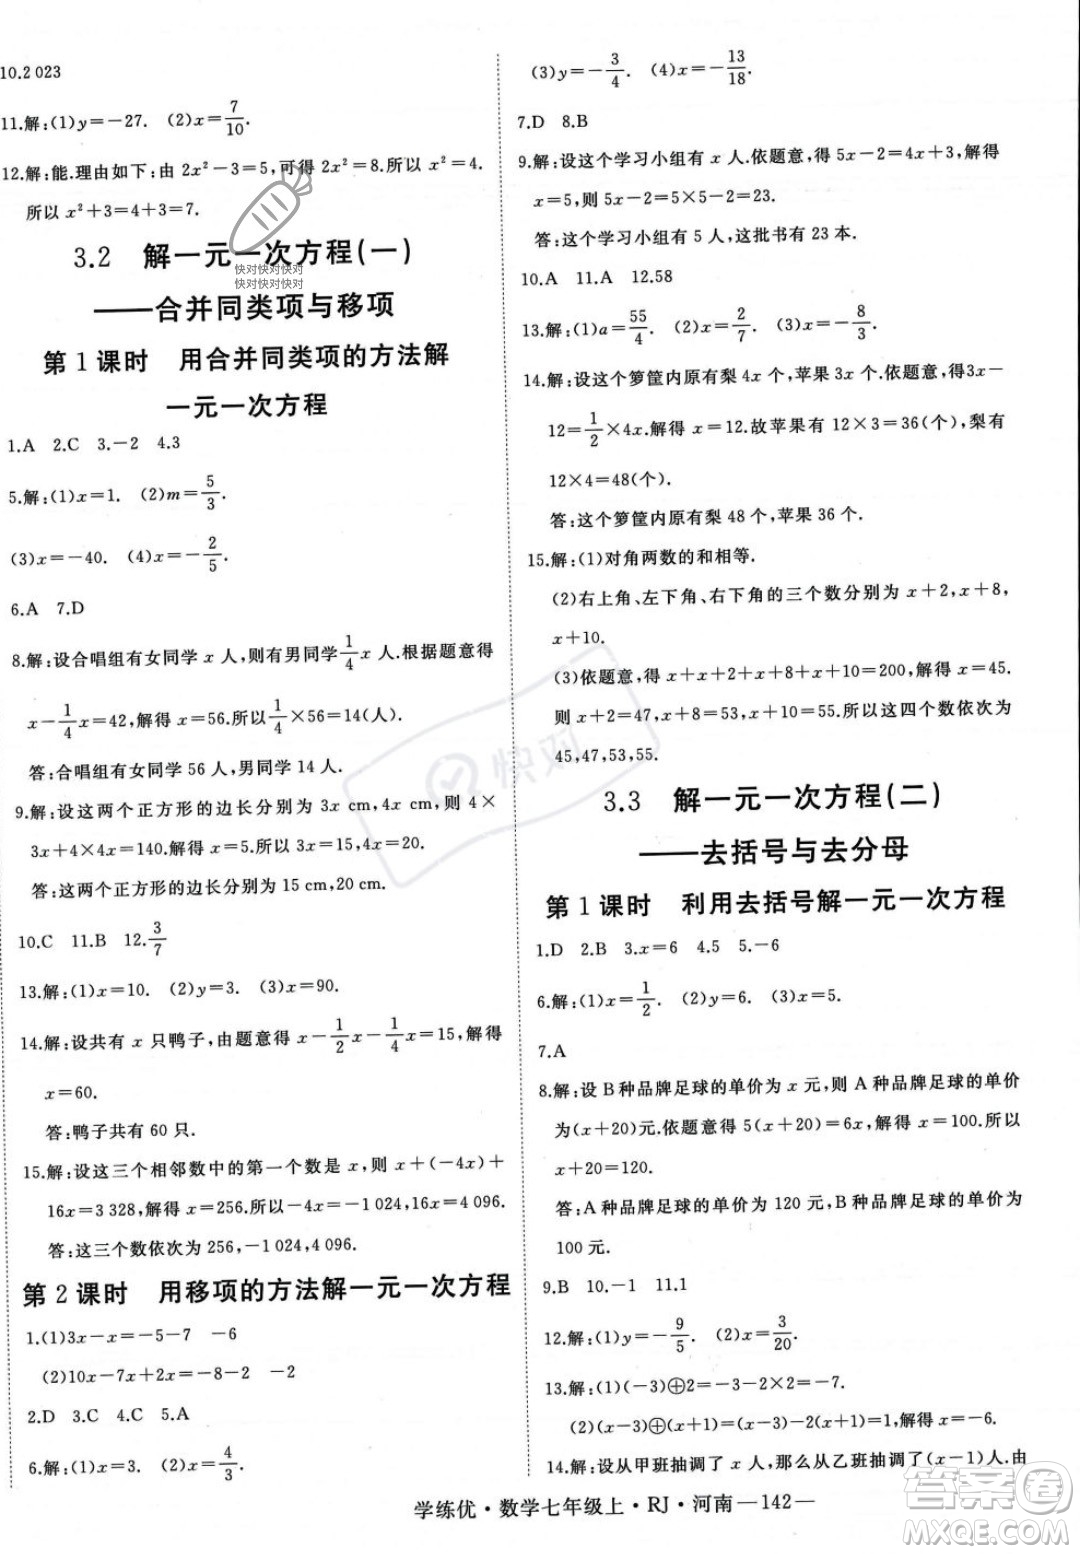 10.2 023
11.解:(1)y=-27. (2)x=7/10.
12.解:能.理由如下:由 2x²-3=5,可得 2x²=8.所以 x²=4.
所以 x²+3=4+3=7.
3.2 解一元一次方程(一)
——合并同类项与移项
第 1 课时 用合并同类项的方法解
一元一次方程
1.A 2.C 3.-2 4.3
5.解:(1)x=1. (2)m=5/3.
(3)x=-40. (4)x=-2/5.
6.A 7.D
8.解:设合唱组有女同学 x 人,则有男同学1/4x 人.根据题意得
x-1/4x=42,解得 x=56.所以1/4×56=14(人).
答:合唱组有女同学 56 人,男同学 14 人.
9.解:设这两个正方形的边长分别为 3x cm,4x cm,则 4×
3x+4×4x=140.解得 x=5.所以 3x=15,4x=20.
答:这两个正方形的边长分别为 15 cm,20 cm.
10.C 11.B 12.3/7
13.解:(1)x=10. (2)y=3. (3)x=90.
14.解:设共有 x 只鸭子,由题意得 x-1/2x-1/4x=15,解得
x=60.
答:鸭子共有 60 只.
15.解:设这三个相邻数中的第一个数是 x,则 x+(-4x)+
16x=3 328,解得 x=256.所以-4x=-1 024,16x=4 096.
答:这三个数依次为 256,-1 024,4 096.
第 2 课时 用移项的方法解一元一次方程
1.(1)3x-x=-5-7 -6
(2)10x-7x+2x=-8-2 -2
2.D 3.C 4.C 5.A
6.解:(1)x=3. (2)x=4/3.
(3)y=-3/4. (4)x=-13/18.
7.D 8.B
9.解:设这个学习小组有 x 人.依题意,得 5x-2=4x+3,解得
x=5,则 5x-2=5×5-2=23.
答:这个学习小组有 5 人,这批书有 23 本.
10.A 11.A 12.58
13.解:(1)a=55/4. (2)x=2/7. (3)x=-8/3.
14.解:设这个箩筐内原有梨 4x 个,苹果 3x 个.依题意,得3x-
12=1/2×4x.解得 x=12.故苹果有 12×3=36(个),梨有
12×4=48(个).
答:这个箩筐内原有梨 48 个,苹果 36 个.
15.解:(1)对角两数的和相等.
(2)右上角、左下角、右下角的三个数分别为 x+2,x+8,
x+10.
(3)依题意,得 x+x+2+x+8+x+10=200,解得 x=45.
则 x+2=47,x+8=53,x+10=55.所以这四个数依次为
45,47,53,55.
3.3 解一元一次方程(二)
——去括号与去分母
第 1 课时 利用去括号解一元一次方程
1.D 2.B 3.x=6 4.5 5.-6
6.解:(1)x=1/2. (2)y=6. (3)x=5.
7.A
8.解:设 B 种品牌足球的单价为 x 元,则 A 种品牌足球的单价
为(x+20)元.依题意得 5(x+20)=6x,解得 x=100.所以
x+20=120.
答:A 种品牌足球的单价为 120 元,B 种品牌足球的单价为
100 元.
9.B 10.-1 11.1
12.解:(1)y=-9/5. (2)x=3/20.
13.解:(1)(-3)⊕2=2×(-3)-1=-7.
(2)(x-3)⊕(x+3)=2(x-3)-1/2(x+3)=x-6,解得 x=-6.
14.解:设从甲班抽调了 x 人,那么从乙班抽调了(x-1)人,由
学练优·数学七年级上·RJ·河南—142—
快对快对快对
快对快对快对
快对
MXQE.COM